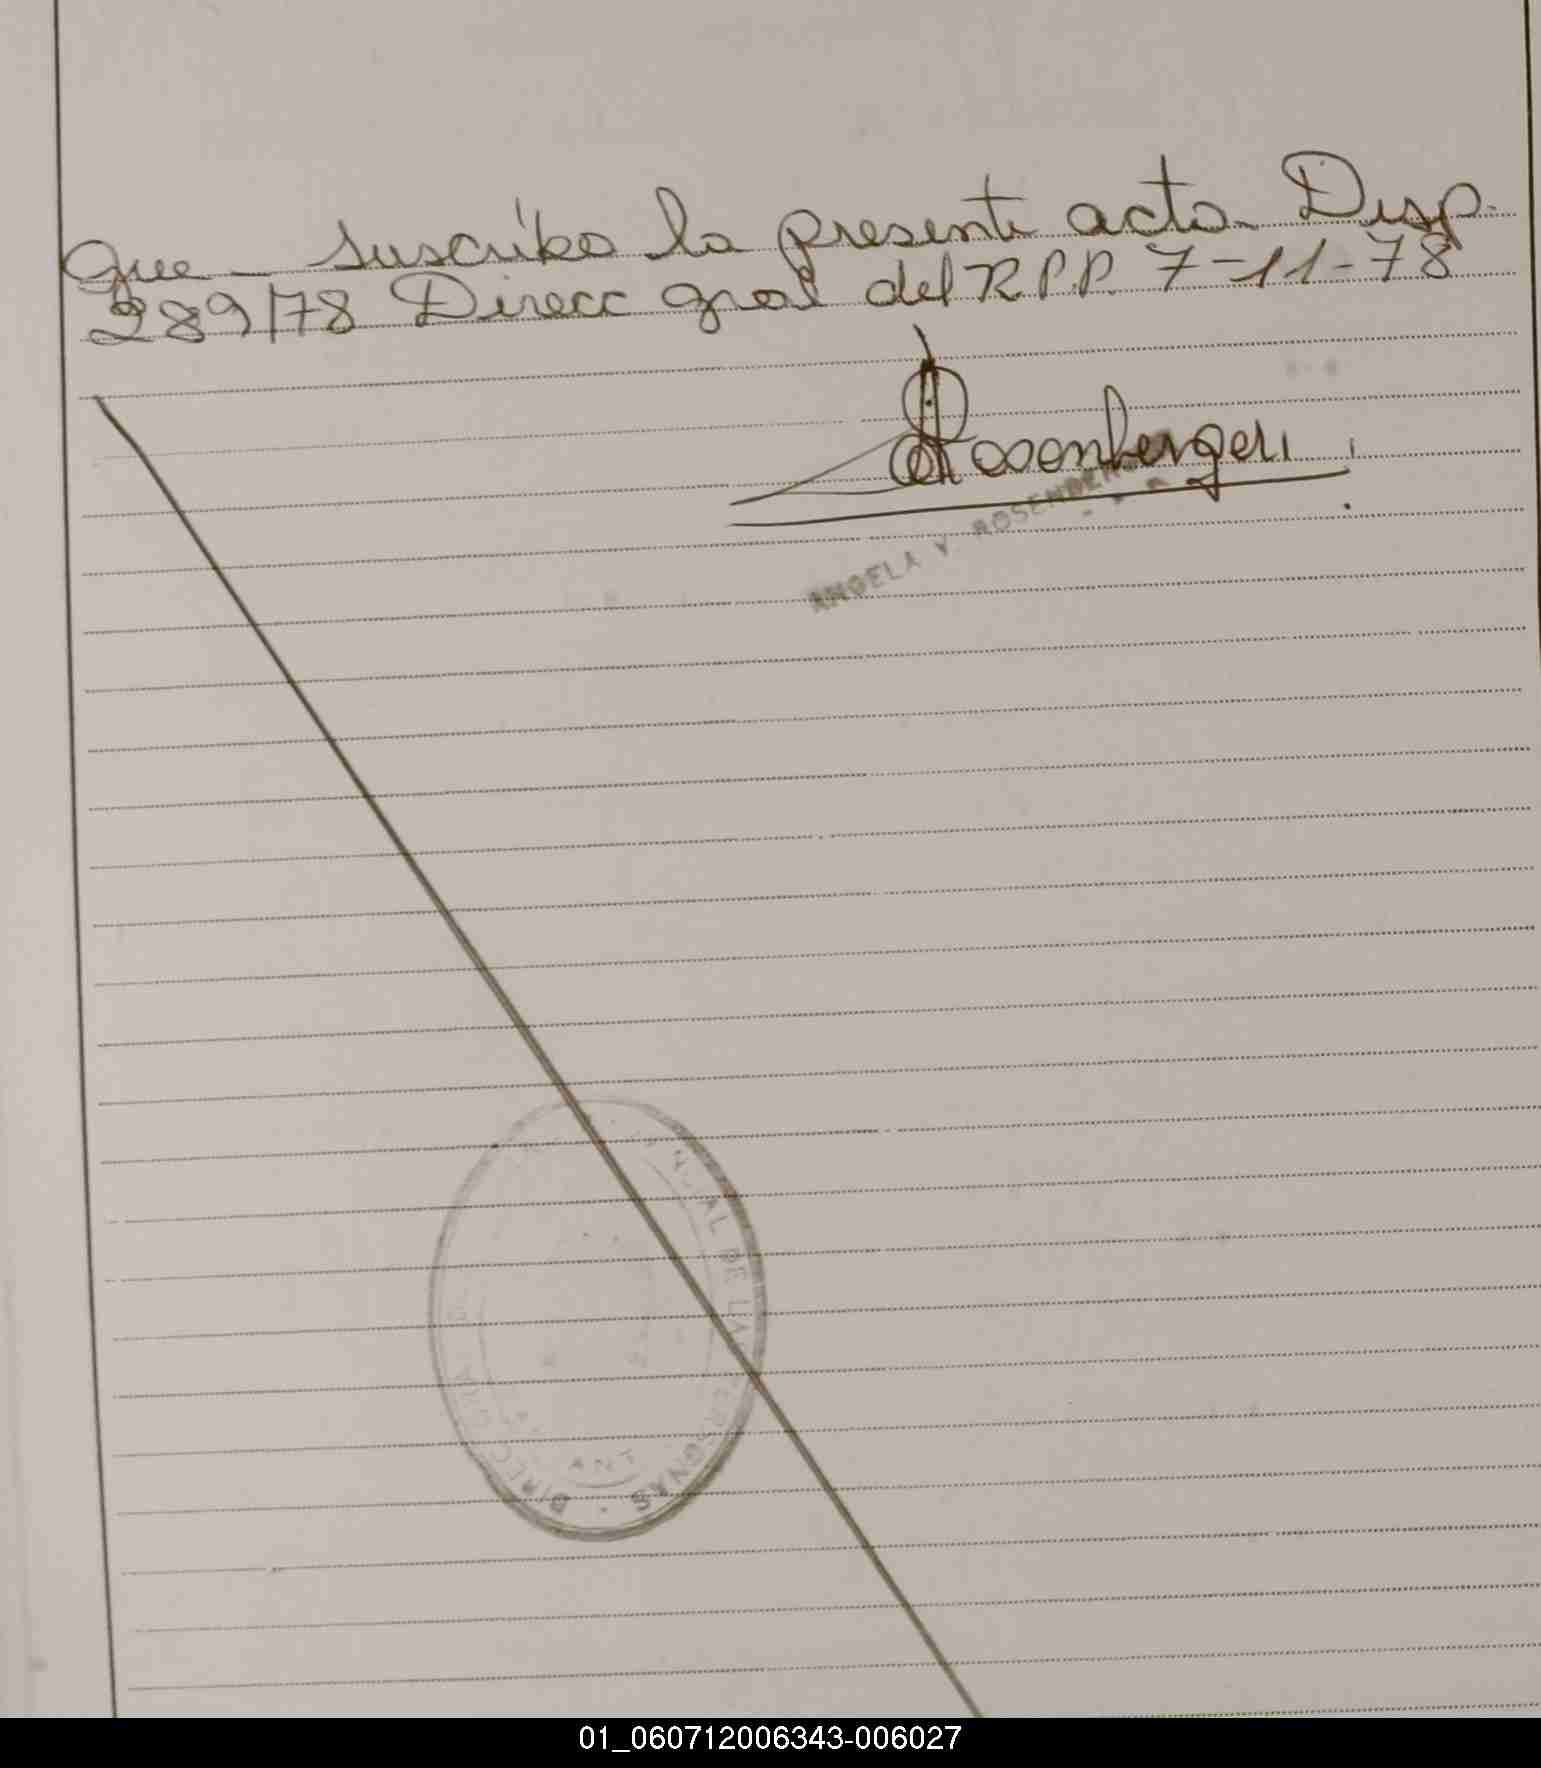 Que – suscribo la presente acta. Disp.
289/78 Direcc gral del R.P.P. 7-11-78
Rosenberger
ANGELA V ROSENBERGER
DIRECC NCIAL DE LAS PERSONAS
01_060712006343-006027